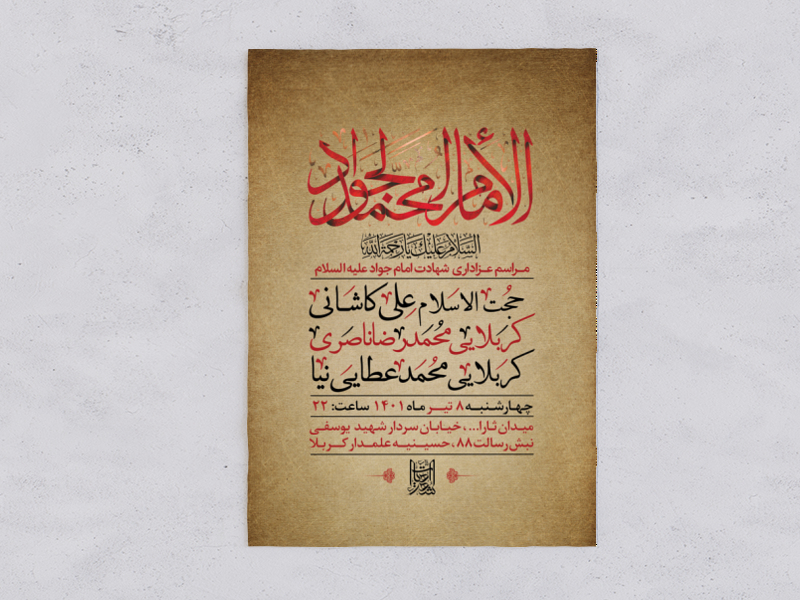 الإمام محمد الجواد
السلام علیک یا رحمة الله
مراسم عزاداری شهادت امام جواد علیه السلام
حجت الاسلام علی کاشانی
کربلایی محمدرضا ناصری
کربلایی محمد عطایی نیا
چهارشنبه ۸ تیر ماه ۱۴۰۱ ساعت: ۲۲
میدان ثارا...، خیابان سردار شهید یوسفی
نبش رسالت ۸۸، حسینیه علمدار کربلا